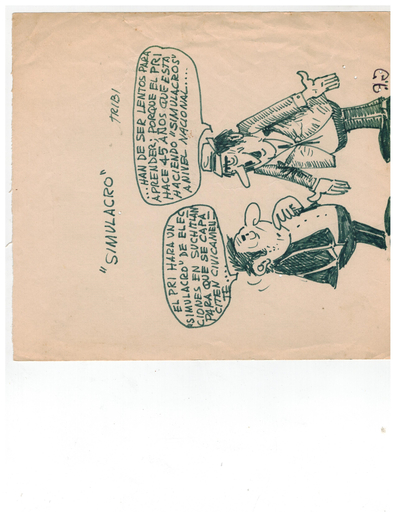 "SIMULACRO"
TRIBI
EL PRI HARA UN
"SIMULACRO" DE ELEC
CIONES EN SUCHITLAN
PARA QUE SE CAPA
CITEN CIVICAMEN
TE....
...HAN DE SER LENTOS PARA
APRENDER; PORQUE EL PRI
HACE 45 AÑOS QUE ESTA
HACIENDO "SIMULACROS"
A NIVEL NACIONAL....